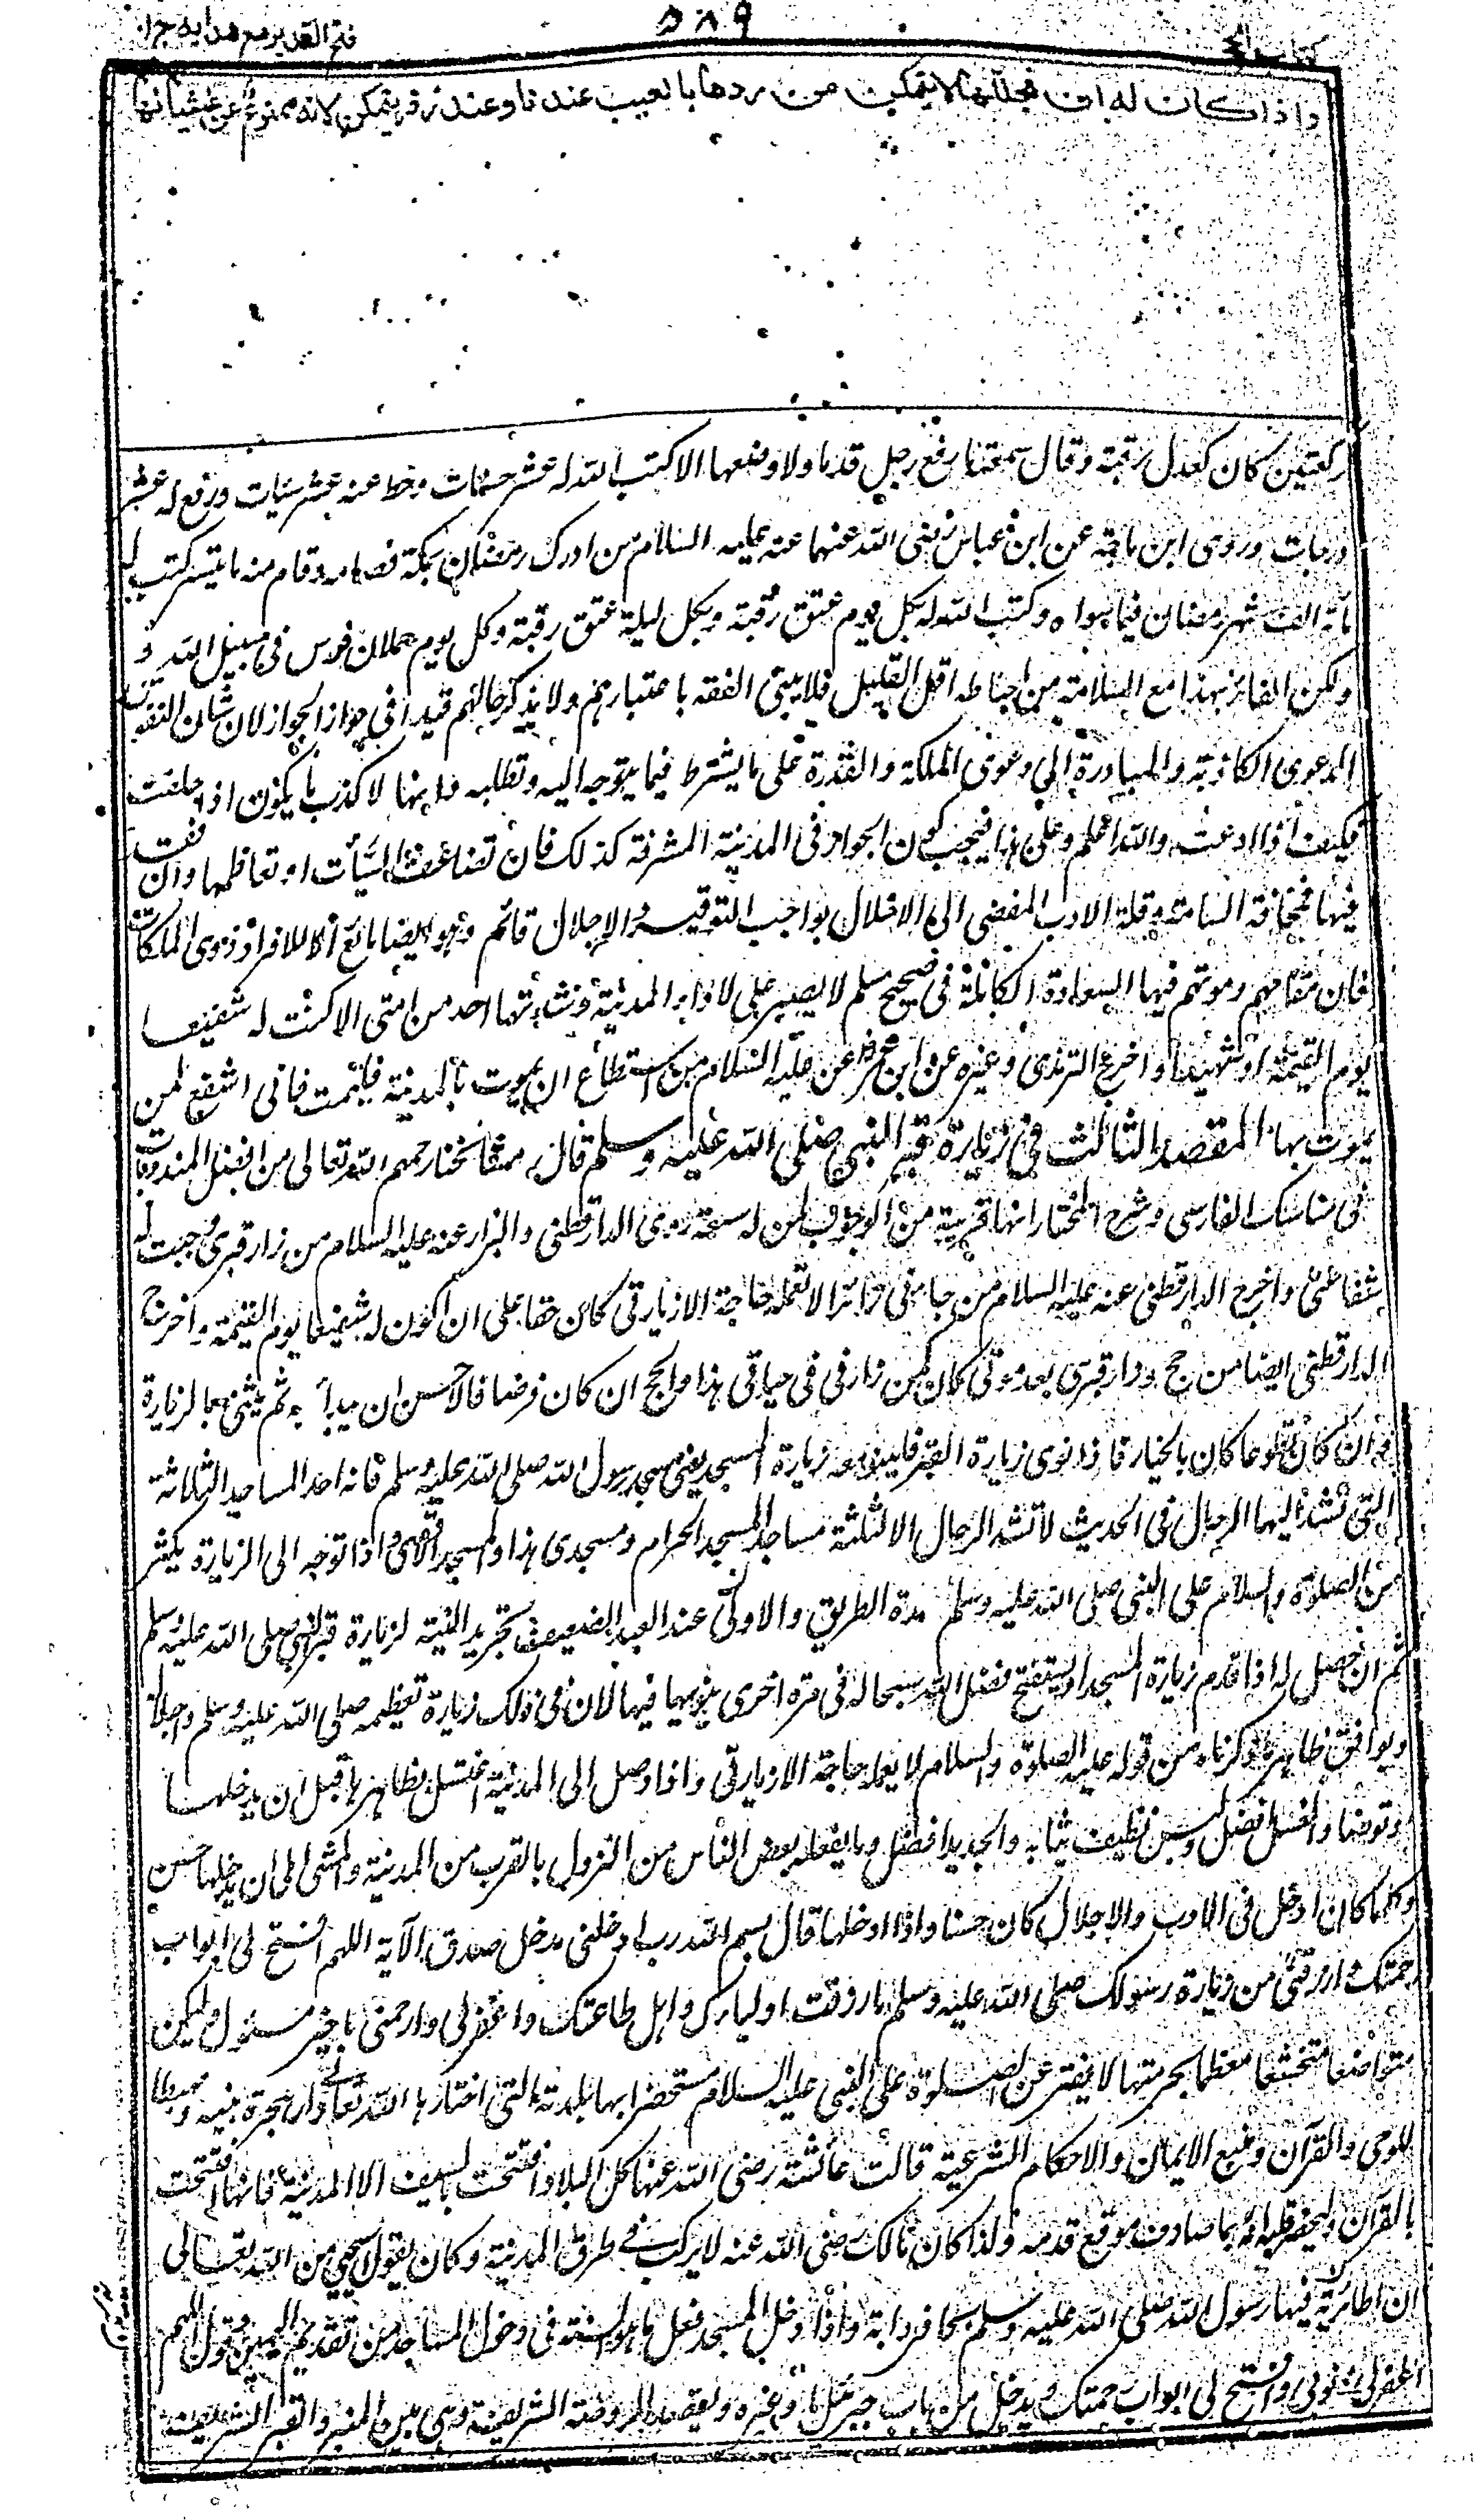 كتاب الحج
٥٨٩
فتح القدير مع هدايه ج ١
واذا كان له ان يحللها لا يتمكن من ردها بالعيب عندنا وعند زفر يتمكن لانه ممنوع عن غشيانها
ركعتين كان كعدل رقبة وقال سمعته ما رفع رجل قدما ولا وضعها الا كتب الله له عشر حسنات وحط عنه عشر سيئات ورفع له عشر
درجات وروى ابن ماجة عن ابن عباس رضى الله عنهما عنه عليه السلام من ادرك رمضان بمكة فصامه وقام منه ما تيسر كتب له
مائة الف شهر رمضان فيما سواه وكتب الله له بكل يوم عتق رقبة وبكل ليلة عتق رقبة وكل يوم حملان فرس فى سبيل الله و
ولكن الفائز بهذا مع السلامة من احباطه اقل القليل فلا يبتنى الفقه باعتبارهم ولا يذكر حالهم قيدا فى جواز الجوار لان شان النفوس
الدعوى الكاذبة والمبادرة الى دعوى الملكة والقدرة على ما يشترط فيما يتوجه اليه وتطلبه وانها لاكذب ما يكون اذا حلفت
فكيف اذا ادعت والله اعلم وعلى هذا فيجب كون الجوار فى المدينة المشرفة كذلك فان تضاعف السيئات او تعاظمها وان فقد
فيها فمخافة السامة وقلة الادب المفضى الى الاخلال بواجب التوقير والاجلال قائم وهو ايضا مانع الا للافراد ذوى الملكات
فان مقامهم وموتهم فيها السعادة الكاملة فى صحيح مسلم لا يصبر على لاواء المدينة وشدتها احد من امتى الا كنت له شفيعا
يوم القيمة او شهيدا واخرج الترمذى وغيره عن ابن عمر عن عليه السلام من استطاع ان يموت بالمدينة فليمت فانى اشفع لمن
يموت بها المقصد الثالث فى زيارة قبر النبى صلى الله عليه وسلم قال مشائخنا رحمهم الله تعالى من افضل المندوبات
فى مناسك الفارسى وشرح المختار انها قريبة من الوجوب لمن له سعة روى الدارقطنى والبزار عنه عليه السلام من زار قبرى وجبت له
شفاعتى واخرج الدارقطنى عنه عليه السلام من جاءنى زائرا لا تعمله حاجة الا زيارتى كان حقا على ان اكون له شفيعا يوم القيمة واخرج
الدارقطنى ايضا من حج وزار قبرى بعد موتى كان كمن زارنى فى حياتى هذا والحج ان كان فرضا فالاحسن ان يبدأ به ثم يثنى بالزيارة
وان كان تطوعا كان بالخيار فاذا نوى زيارة القبر فلينو معه زيارة المسجد يعنى مسجد رسول الله صلى الله عليه وسلم فانه احد المساجد الثلاثة
التى تشد اليها الرحال فى الحديث لا تشد الرحال الا لثلثة مساجد المسجد الحرام ومسجدى هذا والمسجد الاقصى واذا توجه الى الزيارة يكثر
من الصلوة والسلام على النبى صلى الله عليه وسلم مدة الطريق والاولى عند العبد الضعيف تجريد النية لزيارة قبر النبى صلى الله عليه وسلم
ثم ان حصل له اذا قدم زيارة المسجد او يستفتح فضل الله سبحانه فى مرة اخرى ينويهما فيها لان فى ذلك زيادة تعظيمه صلى الله عليه وسلم واجلاله
ويوافق ظاهر ما ذكرناه من قوله عليه الصلوة والسلام لا تعمله حاجة الا زيارتى واذا وصل الى المدينة اغتسل بظاهرها قبل ان يدخلها
او توضأ والغسل افضل ولبس نظيف ثيابه والجديد افضل وما يفعله بعض الناس من النزول بالقرب من المدينة والمشى الى ان يدخلها حسن
وكلما كان ادخل فى الادب والاجلال كان حسنا واذا دخلها قال بسم الله رب ادخلنى مدخل صدق الآية اللهم افتح لى ابواب
رحمتك وارزقنى من زيارة رسولك صلى الله عليه وسلم ما رزقت اولياءك واهل طاعتك واغفر لى وارحمنى يا خير مسئول وليكن
متواضعا متخشعا معظما لحرمتها لا يفتر عن الصلوة على النبى عليه السلام مستحضرا انها بلدته التى اختارها الله تعالى دار هجرة نبيه ومهبطا
للوحى والقرآن ومنبع الايمان والاحكام الشرعية قالت عائشة رضى الله عنها كل البلاد افتتحت بالسيف الا المدينة فانها افتتحت
بالقرآن وليحضر قلبه انه ربما صادف موقع قدمه ولذا كان مالك رضى الله عنه لا يركب فى طرق المدينة وكان يقول استحيى من الله تعالى
ان اطأ تربة فيها رسول الله صلى الله عليه وسلم بحافر دابة واذا دخل المسجد فعل ما هو السنة فى دخول المساجد من تقديم اليمين وقول اللهم
اغفر لى ذنوبى وافتح لى ابواب رحمتك ويدخل من باب جبرئيل او غيره ويقصد الروضة الشريفة وهى بين المنبر والقبر الشريف